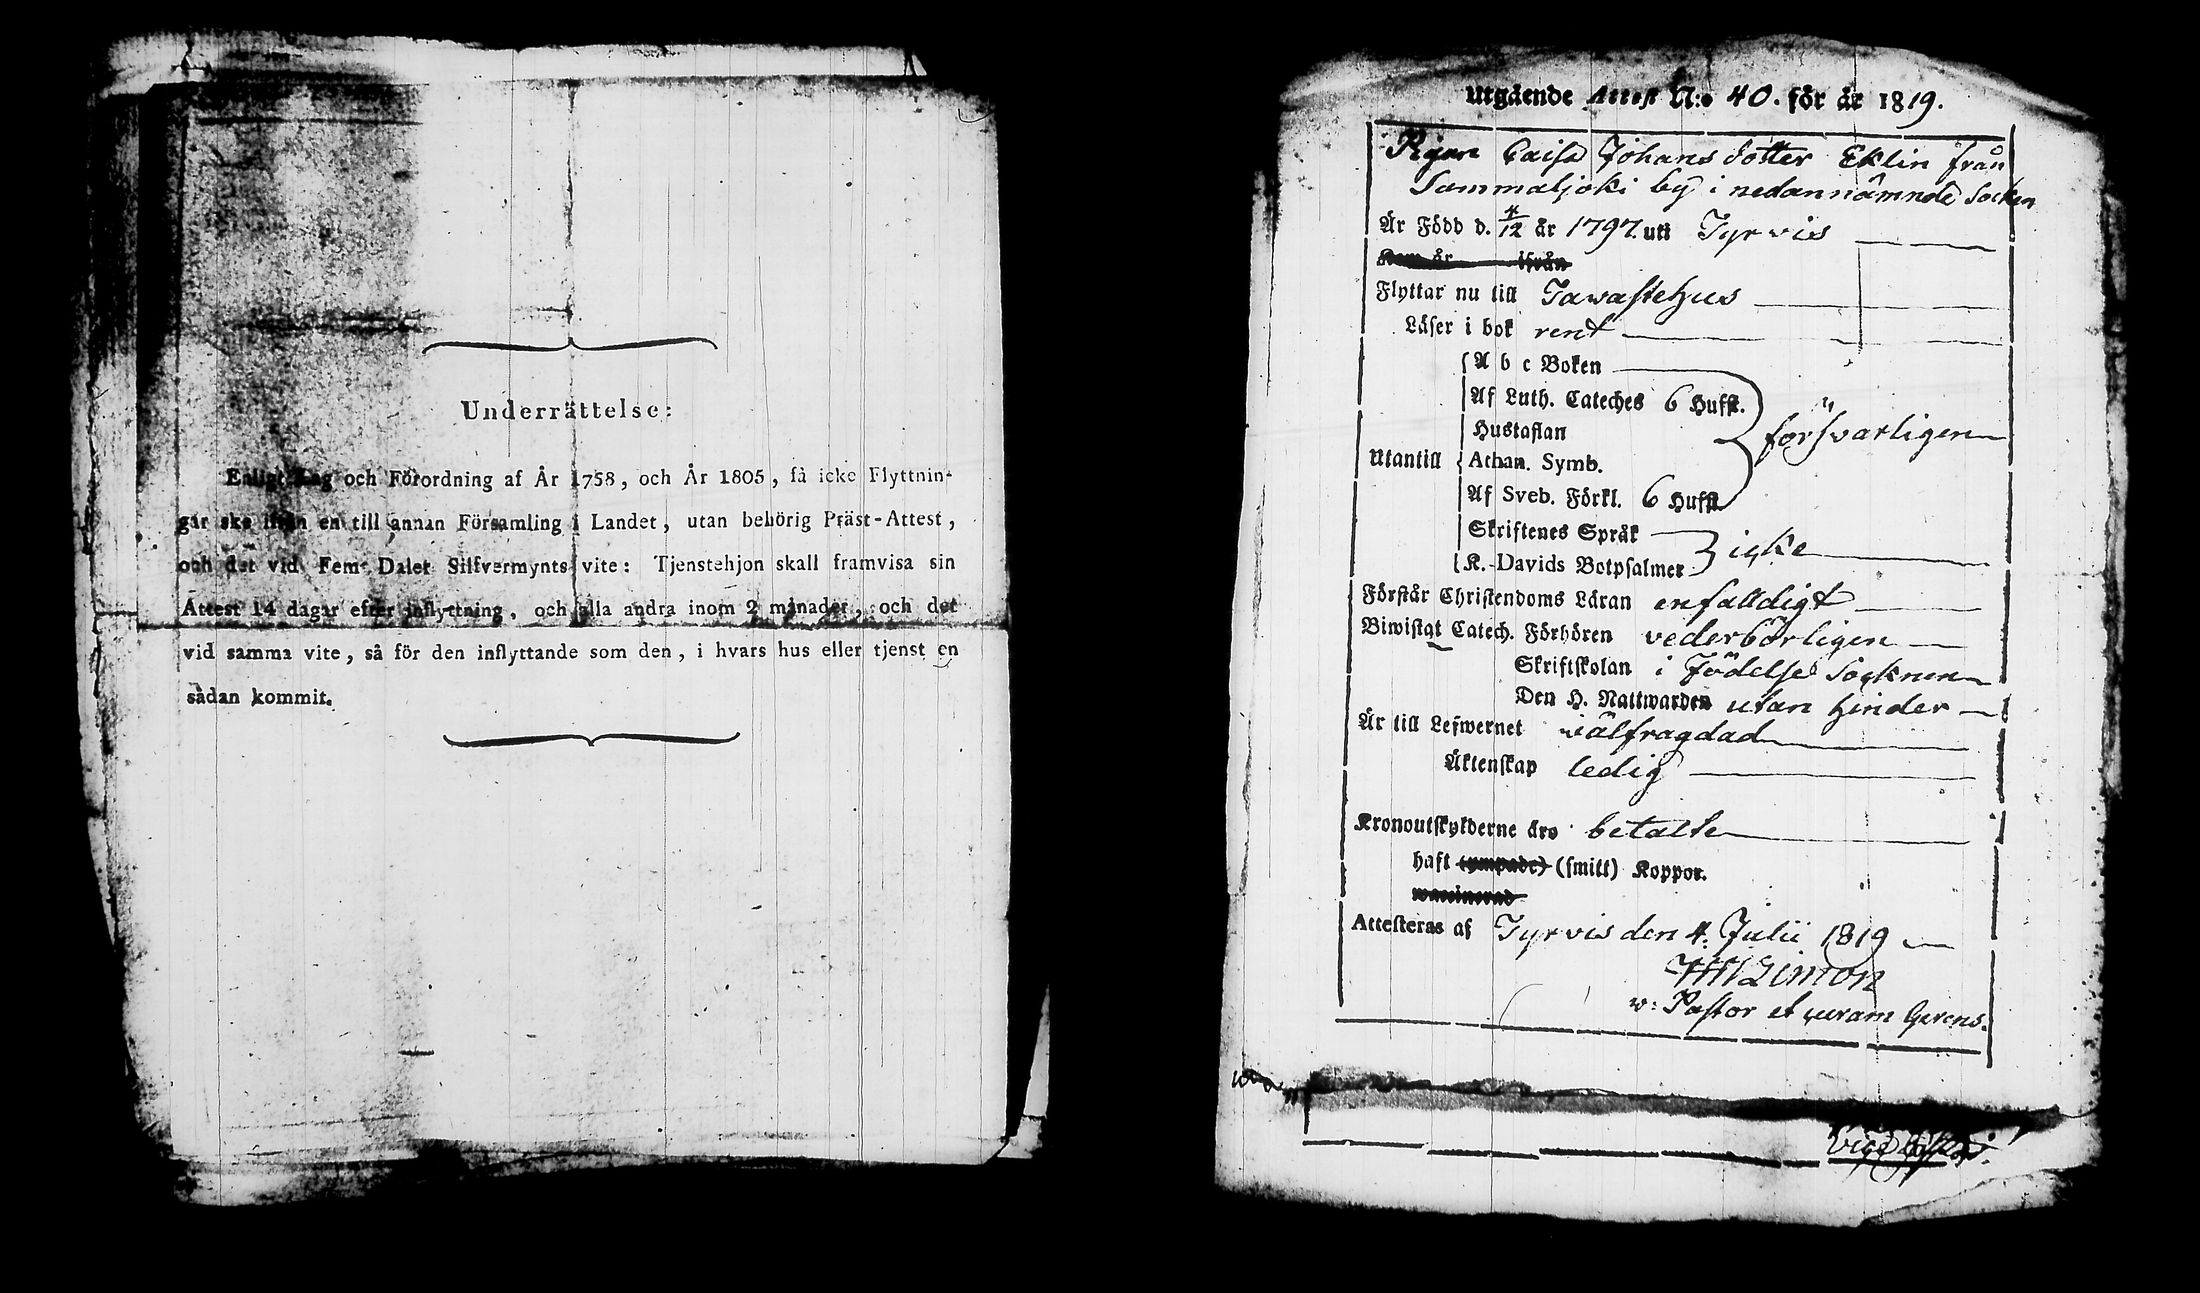 Underrättelse:
Enligt Lag och Förordning af År 1758, och År 1805, få icke Flyttnin-
gar ske ifrån en till annan Församling i Landet, utan behörig Präst-Attest,
och det vid Fem Daler Silfvermynts vite: Tjenstehjon skall framvisa sin
Attest 14 dagar efter inflyttning, och alla andra inom 2 månader, och det
vid samma vite, så för den inflyttande som den, i hvars hus eller tjenst en
sådan kommit.
Utgående Attest N:o 40. för år 1819.
Pigan Caisa Johans dotter Eklin från
Sammaljoki by i nedannämnde Socken
Är Född d. 4/12 år 1797. uti Tyrvis
Kom år ifrån
Flyttar nu till Tawastehus
Läser i bok rent
A b c Boken
Af Luth. Cateches 6 Hufst.
Hustaflan
försvarligen
Utantill Athan. Symb.
Af Sveb. Förkl. 6 Hufst.
Skriftenes Språk
icke
K. Davids Botpsalmer
Förstår Christendoms Läran enfalldigt
Biwistat Catech. Förhören vederbörligen
Skriftskolan i Födelse Socknen
Den H. Nattwarden utan hinder
Är till Lefwernet wälfragdad
Äktenskap ledig
Kronoutskylderne äro betalte
haft (ympade) (smitt) Koppor.
waccinerad
Attesteras af Tyrvis den 4. Julii 1819
Limon
w: Pastor et curam Gerens.